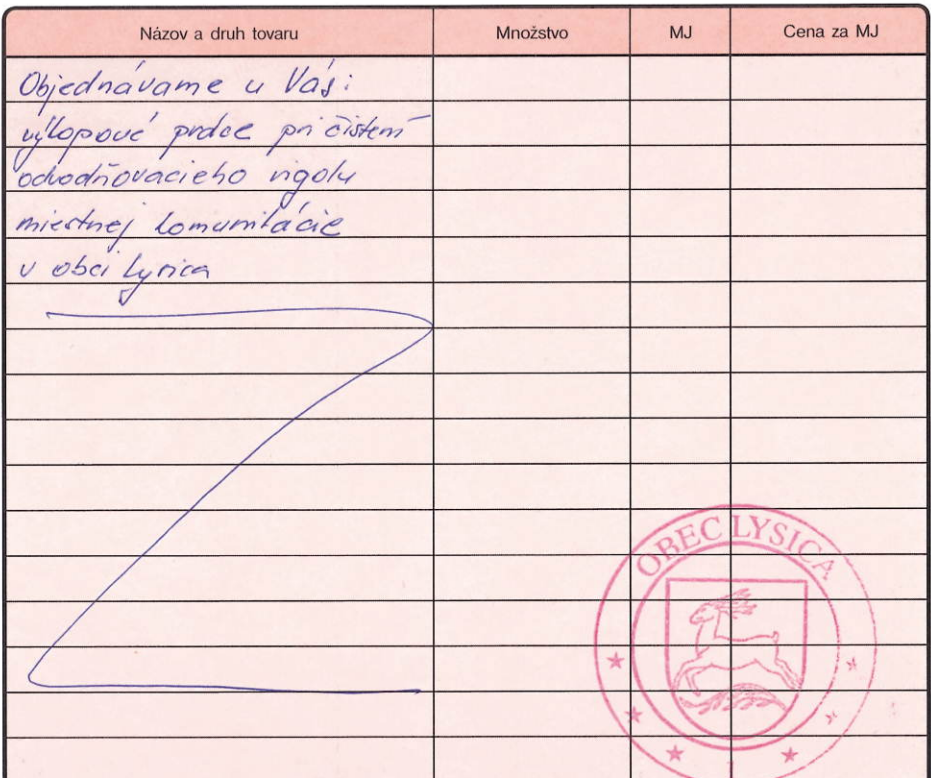 Názov a druh tovaru Množstvo MJ Cena za MJ
Objednávame u Vás:
výkopové práce pri čistení
odvodňovacieho rigolu
miestnej komunikácie
v obci Lysica
OBEC LYSICA